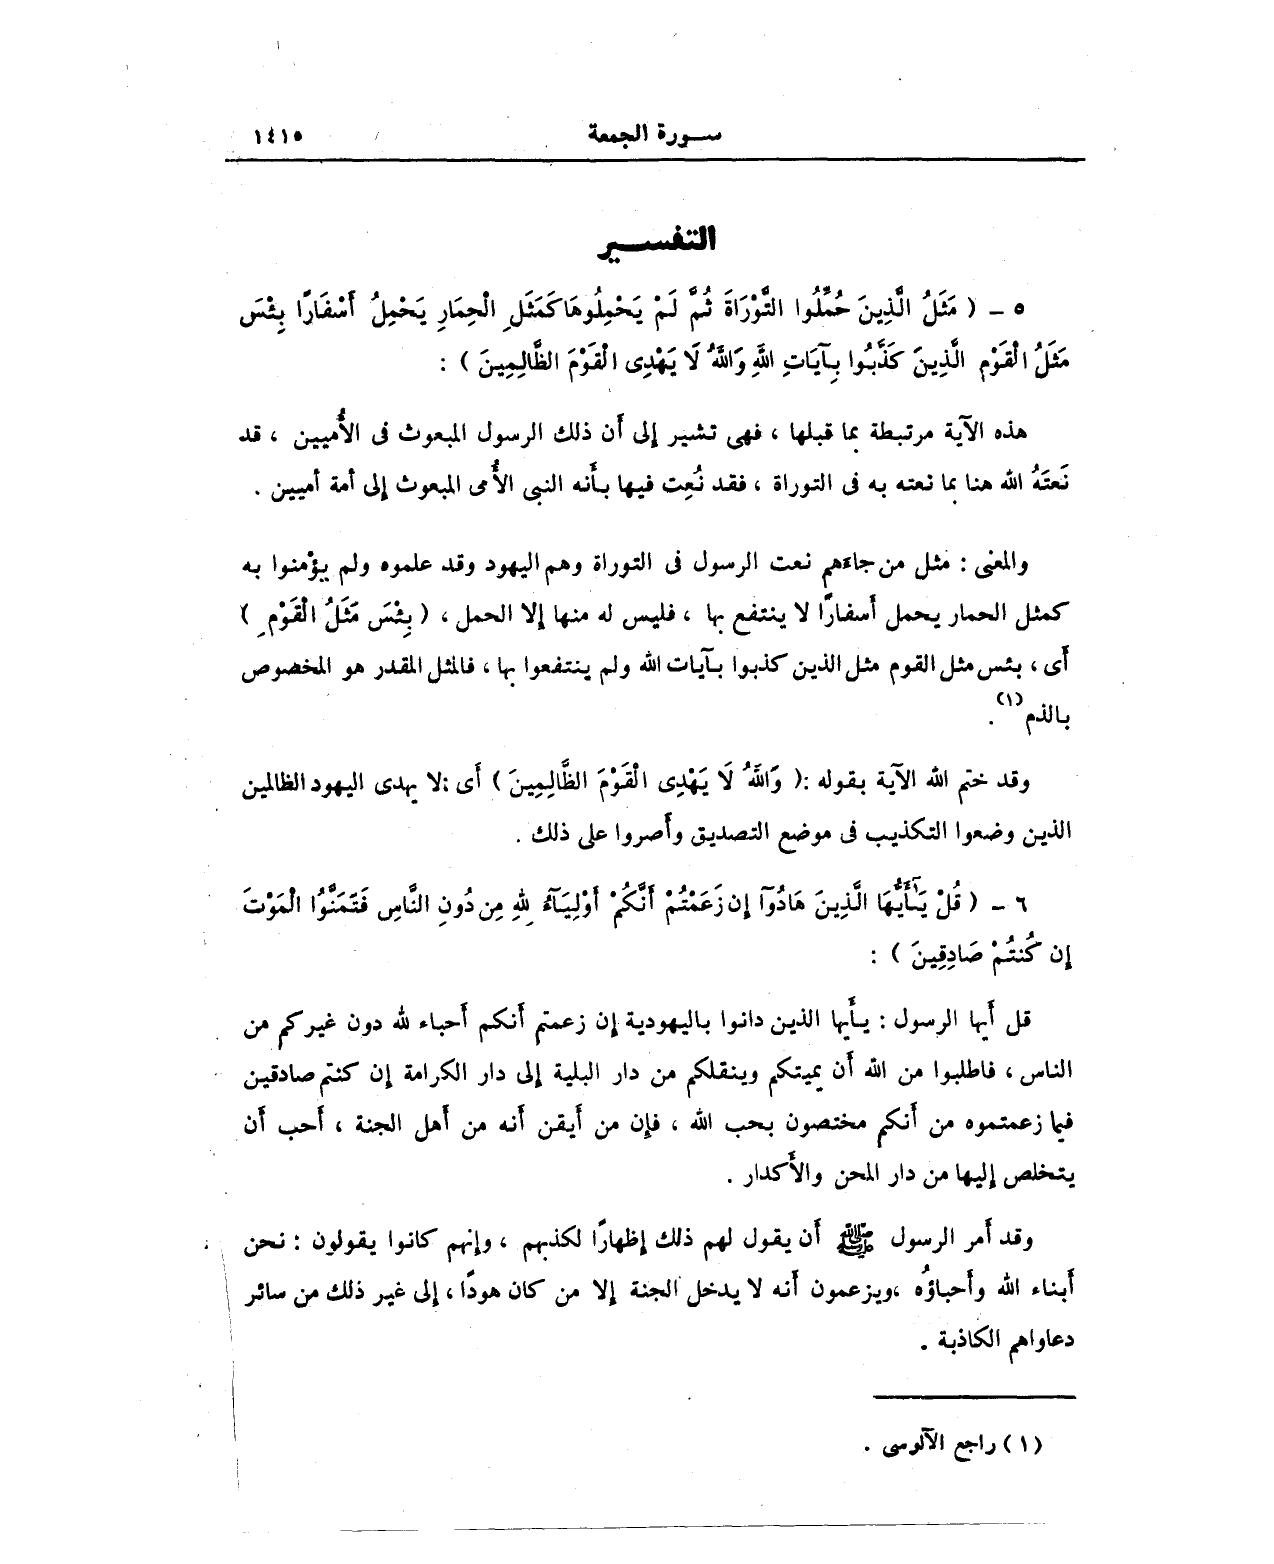 سورة الجمعة ١٤١٥
التفسير
٥ ـ ( مَثَلُ الَّذِينَ حُمِّلُوا التَّوْرَاةَ ثُمَّ لَمْ يَحْمِلُوهَا كَمَثَلِ الْحِمَارِ يَحْمِلُ أَسْفَارًا بِئْسَ
مَثَلُ الْقَوْمِ الَّذِينَ كَذَّبُوا بِآيَاتِ اللهِ وَاللهُ لَا يَهْدِى الْقَوْمَ الظَّالِمِينَ ) :
هذه الآية مرتبطة بما قبلها ، فهى تشير إلى أن ذلك الرسول المبعوث فى الأُميين ، قد
نَعتَهُ الله هنا بما نعته به فى التوراة ، فقد نُعِت فيها بأنه النبى الأُمى المبعوث إلى أمة أميين .
والمعنى : مثل من جاءهم نعت الرسول فى التوراة وهم اليهود وقد علموه ولم يؤمنوا به
كمثل الحمار يحمل أسفارًا لا ينتفع بها ، فليس له منها إلا الحمل ، ( بِئْسَ مَثَلُ الْقَوْمِ )
أى ، بئس مثل القوم مثل الذين كذبوا بآيات الله ولم ينتفعوا بها ، فالمثل المقدر هو المخصوص
بالذم (١) .
وقد ختم الله الآية بقوله : ( وَاللهُ لَا يَهْدِى الْقَوْمَ الظَّالِمِينَ ) أى : لا يهدى اليهود الظالمين
الذين وضعوا التكذيب فى موضع التصديق وأصروا على ذلك .
٦ ـ ( قُلْ يَـٰٓأَيُّهَا الَّذِينَ هَادُوٓا إِن زَعَمْتُمْ أَنَّكُمْ أَوْلِيَآءُ لِلهِ مِن دُونِ النَّاسِ فَتَمَنَّوُا الْمَوْتَ
إِن كُنتُمْ صَادِقِينَ ) :
قل أيها الرسول : يأيها الذين دانوا باليهودية إن زعمتم أنكم أحباء لله دون غيركم من
الناس ، فاطلبوا من الله أن يميتكم وينقلكم من دار البلية إلى دار الكرامة إن كنتم صادقين
فيما زعمتموه من أنكم مختصون بحب الله ، فإن من أيقن أنه من أهل الجنة ، أحب أن
يتخلص إليها من دار المحن والأكدار .
وقد أمر الرسول ﷺ أن يقول لهم ذلك إظهارًا لكذبهم ، وإنهم كانوا يقولون : نحن
أبناء الله وأحباؤُه ،ويزعمون أنه لا يدخل الجنة إلا من كان هودًا ، إلى غير ذلك من سائر
دعاواهم الكاذبة .
(١) راجع الآلوسى .